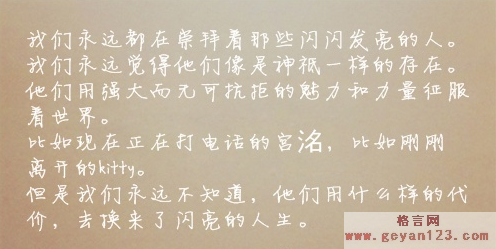 我们永远都在崇拜着那些闪闪发亮的人。
我们永远觉得他们像是神祇一样的存在。
他们用强大而无可抗拒的魅力和力量征服
着世界。
比如现在正在打电话的宫洺，比如刚刚
离开的kitty。
但是我们永远不知道，他们用什么样的代
价，去换来了闪亮的人生。
格言网
www.geyan123.com